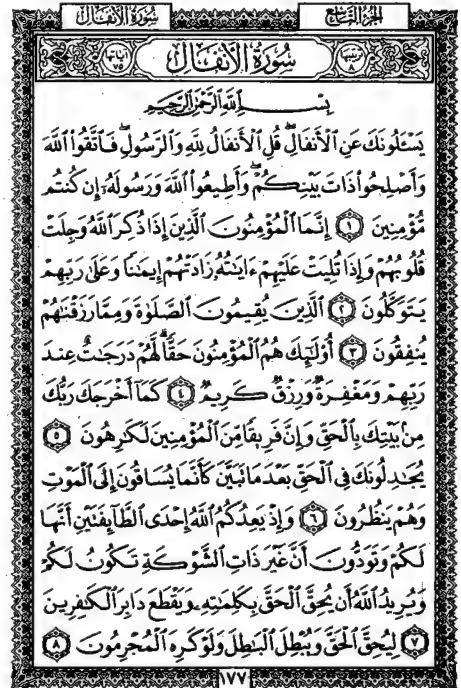 سُورَةُ الأَنفَالِ
الجُزْءُ التَّاسِعُ
سُورَةُ الأَنفَالِ
ترتيبها ٨
آياتها ٧٥
بِسْمِ اللَّهِ الرَّحْمَٰنِ الرَّحِيمِ
يَسْـَٔلُونَكَ عَنِ ٱلْأَنفَالِۖ قُلِ ٱلْأَنفَالُ لِلَّهِ وَٱلرَّسُولِۖ فَٱتَّقُوا۟ ٱللَّهَ
وَأَصْلِحُوا۟ ذَاتَ بَيْنِكُمْۖ وَأَطِيعُوا۟ ٱللَّهَ وَرَسُولَهُۥٓ إِن كُنتُم
مُّؤْمِنِينَ ١ إِنَّمَا ٱلْمُؤْمِنُونَ ٱلَّذِينَ إِذَا ذُكِرَ ٱللَّهُ وَجِلَتْ
قُلُوبُهُمْ وَإِذَا تُلِيَتْ عَلَيْهِمْ ءَايَٰتُهُۥ زَادَتْهُمْ إِيمَٰنًا وَعَلَىٰ رَبِّهِمْ
يَتَوَكَّلُونَ ٢ ٱلَّذِينَ يُقِيمُونَ ٱلصَّلَوٰةَ وَمِمَّا رَزَقْنَٰهُمْ
يُنفِقُونَ ٣ أُو۟لَٰٓئِكَ هُمُ ٱلْمُؤْمِنُونَ حَقًّاۚ لَّهُمْ دَرَجَٰتٌ عِندَ
رَبِّهِمْ وَمَغْفِرَةٌ وَرِزْقٌ كَرِيمٌ ٤ كَمَآ أَخْرَجَكَ رَبُّكَ
مِنۢ بَيْتِكَ بِٱلْحَقِّ وَإِنَّ فَرِيقًا مِّنَ ٱلْمُؤْمِنِينَ لَكَٰرِهُونَ ٥
يُجَٰدِلُونَكَ فِى ٱلْحَقِّ بَعْدَ مَا تَبَيَّنَ كَأَنَّمَا يُسَاقُونَ إِلَى ٱلْمَوْتِ
وَهُمْ يَنظُرُونَ ٦ وَإِذْ يَعِدُكُمُ ٱللَّهُ إِحْدَى ٱلطَّآئِفَتَيْنِ أَنَّهَا
لَكُمْ وَتَوَدُّونَ أَنَّ غَيْرَ ذَاتِ ٱلشَّوْكَةِ تَكُونُ لَكُمْ
وَيُرِيدُ ٱللَّهُ أَن يُحِقَّ ٱلْحَقَّ بِكَلِمَٰتِهِۦ وَيَقْطَعَ دَابِرَ ٱلْكَٰفِرِينَ
٧ لِيُحِقَّ ٱلْحَقَّ وَيُبْطِلَ ٱلْبَٰطِلَ وَلَوْ كَرِهَ ٱلْمُجْرِمُونَ ٨
١٧٧